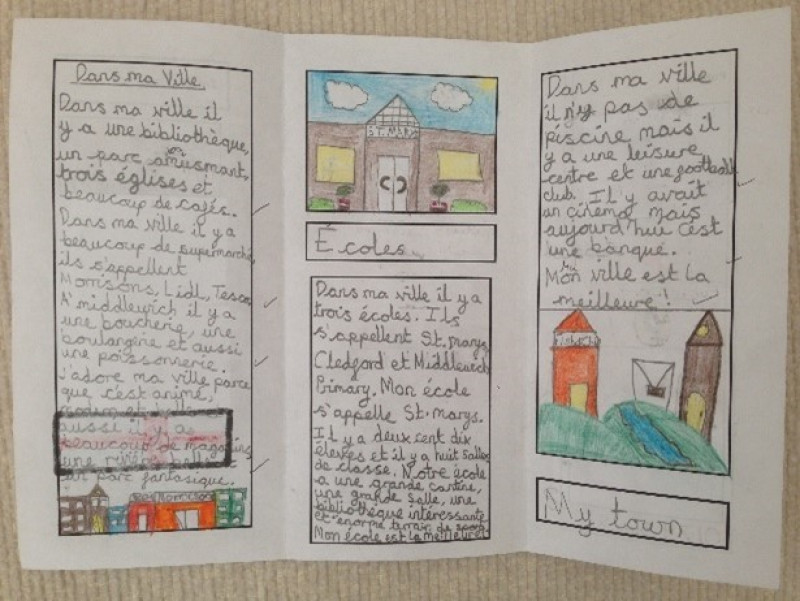 Dans ma Ville
Dans ma ville il
y a une bibliothèque,
un parc amusmant,
trois églises et
beaucoup de cafés.
Dans ma ville il y a
beaucoup de supermarchés
ils s'appellent
Morrisons, Lidl, Tesco.
A' middlewich il y a
une boucherie, une
boulangerie et aussi
une poissonnerie.
J'adore ma ville parce
que c'est animé,
aussi il y a
beaucoup de magasins
une rivière
un parc fantasique.
Morrisons
ST. MARYS
Écoles
Dans ma ville il y a
trois écoles. Ils
s'appellent St. marys
Cledford et Middlewich
Primary. Mon école
s'appelle St. marys.
Il y a deux cent dix
élèves et il y a huit salles
de classe. Notre école
a une grande cantine,
une grande salle, une
bibliothèque intéressante
et énorme terrain de sport
Mon école est la meilleure!
Dans ma ville
il n'y pas de
piscine mais il
y a une leisure
centre et une football
club. Il y avait
un cinéma mais
aujourd'hui c'est
une banque.
Ma ville est la
meilleure!
My town